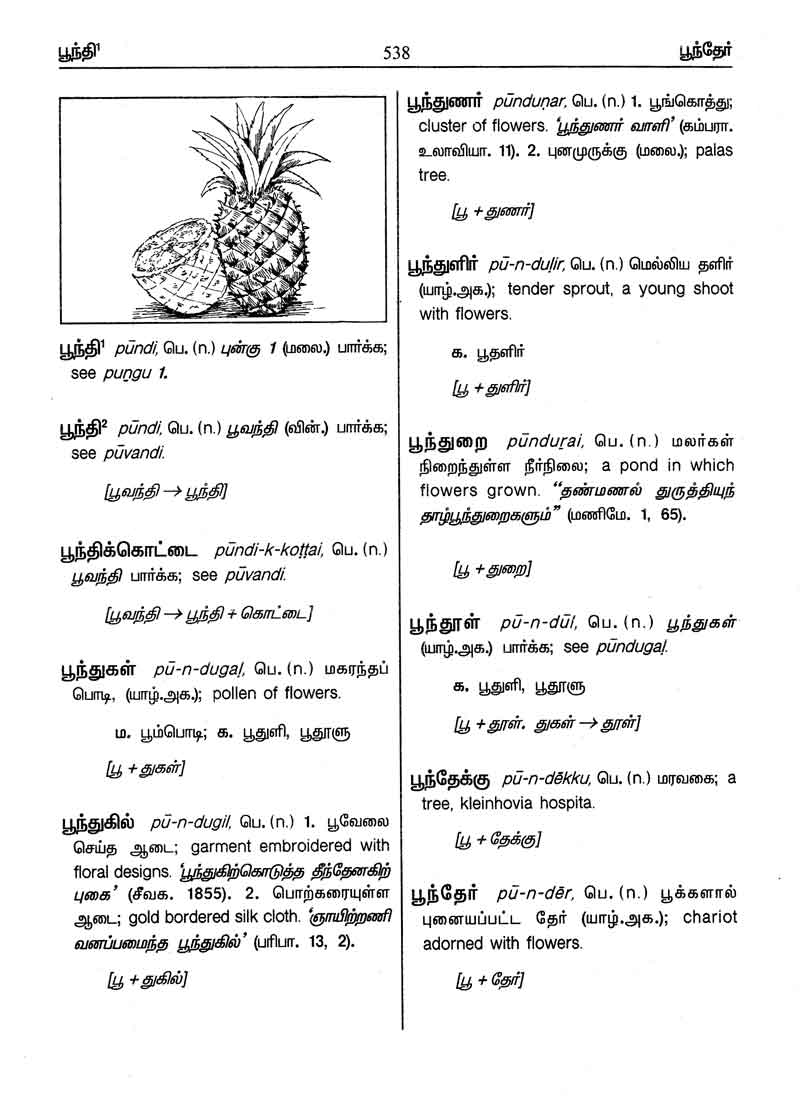 பூந்தி¹
538
பூந்தேர்
பூந்தி¹ pūndi, பெ. (n.) புன்கு 1 (மலை.) பார்க்க;
see puṉgu 1.
பூந்தி² pūndi, பெ. (n.) பூவந்தி (வின்.) பார்க்க;
see pūvandi.
[பூவந்தி → பூந்தி]
பூந்திக்கொட்டை pūndi-k-koṭṭai, பெ. (n.)
பூவந்தி பார்க்க; see pūvandi.
[பூவந்தி → பூந்தி + கொட்டை]
பூந்துகள் pū-n-dugaḷ, பெ. (n.) மகரந்தப்
பொடி, (யாழ்.அக.); pollen of flowers.
ம. பூம்பொடி; க. பூதுளி, பூதூளு
[பூ + துகள்]
பூந்துகில் pū-n-dugil, பெ. (n.) 1. பூவேலை
செய்த ஆடை; garment embroidered with
floral designs. ‘பூந்துகிற்கொடுத்த தீந்தேனகிற்
புகை’ (சீவக. 1855). 2. பொற்கரையுள்ள
ஆடை; gold bordered silk cloth. ‘ஞாயிற்றணி
வனப்பமைந்த பூந்துகில்’ (பரிபா. 13, 2).
[பூ + துகில்]
பூந்துணர் pūnduṇar, பெ. (n.) 1. பூங்கொத்து;
cluster of flowers. ‘பூந்துணர் வாளி’ (கம்பரா.
உலாவியா. 11). 2. புனமுருக்கு (மலை.); palas
tree.
[பூ + துணர்]
பூந்துளிர் pū-n-duḷir, பெ. (n.) மெல்லிய தளிர்
(யாழ்.அக.); tender sprout, a young shoot
with flowers.
க. பூதளிர்
[பூ + துளிர்]
பூந்துறை pūnduṟai, பெ. (n.) மலர்கள்
நிறைந்துள்ள நீர்நிலை; a pond in which
flowers grown. “தண்மணல் துருத்தியுந்
தாழ்பூந்துறைகளும்” (மணிமே. 1, 65).
[பூ + துறை]
பூந்தூள் pū-n-dūḷ, பெ. (n.) பூந்துகள்
(யாழ்.அக.) பார்க்க; see pūndugaḷ.
க. பூதுளி, பூதூளு
[பூ + தூள். துகள் → தூள்]
பூந்தேக்கு pū-n-dēkku, பெ. (n.) மரவகை; a
tree, kleinhovia hospita.
[பூ + தேக்கு]
பூந்தேர் pū-n-dēr, பெ. (n.) பூக்களால்
புனையப்பட்ட தேர் (யாழ்.அக.); chariot
adorned with flowers.
[பூ + தேர்]